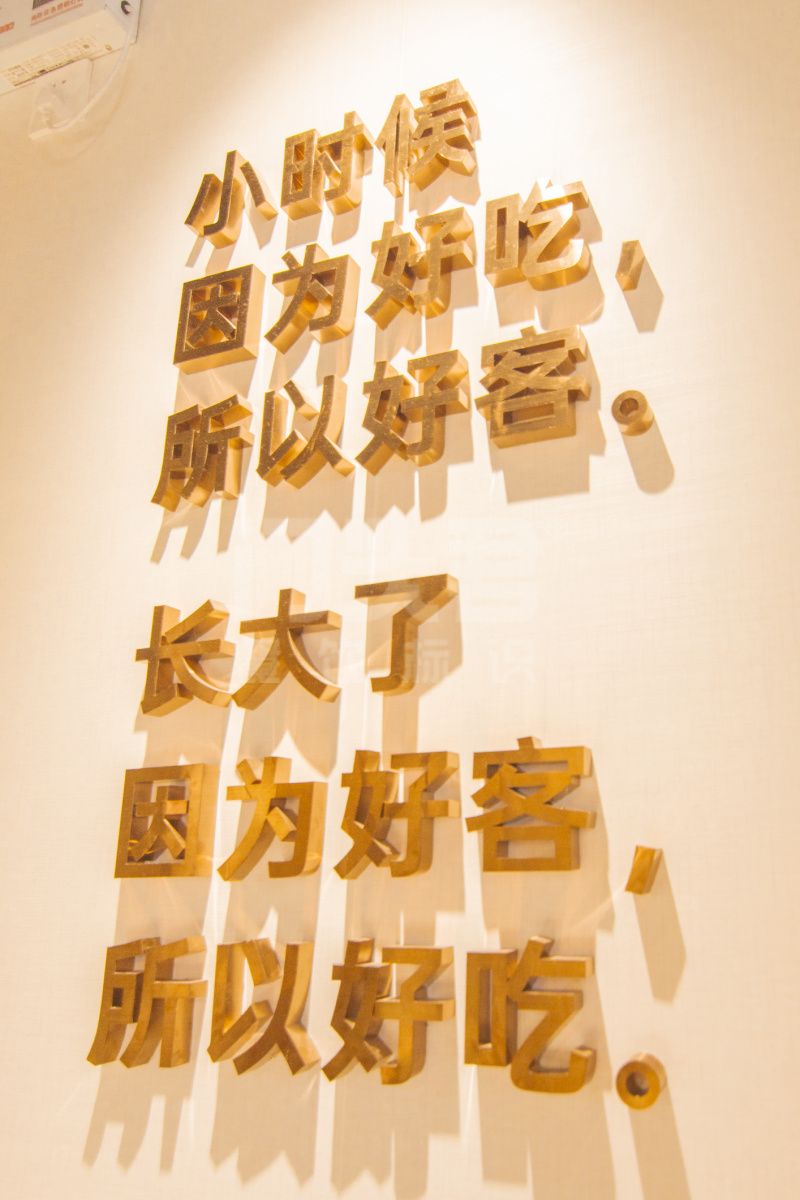 小时候
因为好吃，
所以好客。
长大了
因为好客，
所以好吃。